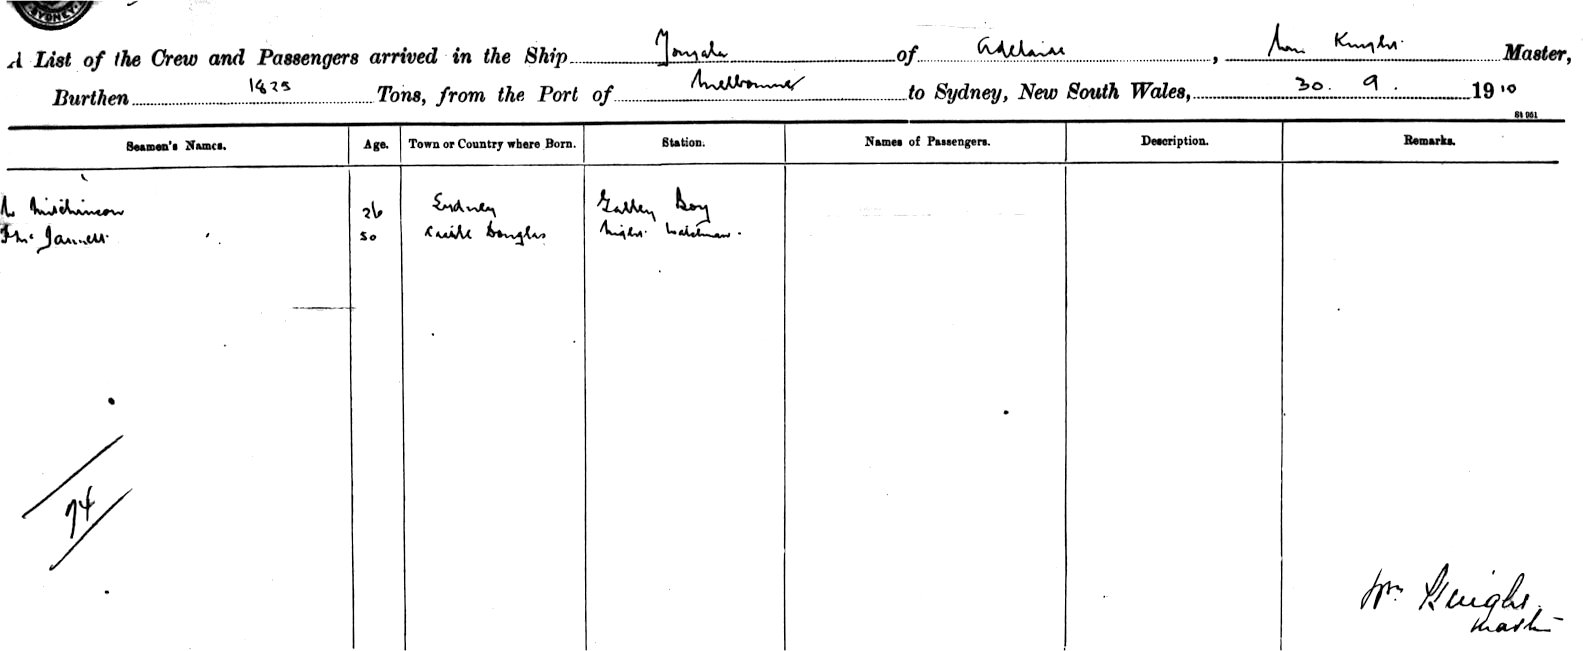 SYDNEY
A List of the Crew and Passengers arrived in the Ship Yongala of Adelaide, Wm Knight Master,
Burthen 1825 Tons, from the Port of Melbourne to Sydney, New South Wales, 30. 9. 1910
St 061
Seamen's Names. Age. Town or Country where Born. Station. Names of Passengers. Description. Remarks.
26 Sydney Galley Boy
50 Castle Douglas Night Watchman.
74
Wm Knight
Master